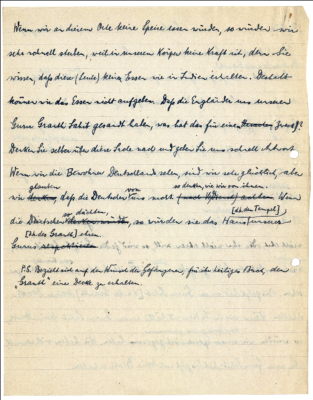 Wenn wir an diesem Orte keine Speise essen würden, so würden wir
sehr schnell sterben, weil in unserem Körper keine Kraft ist, denn Sie
wissen, dass diese (Leute) kein Essen wie in Indien erhalten. Deshalb
können wir das Essen nicht aufgeben. Dass die Engländer uns unseren
Guru Granth Sahib gesandt haben, was hat das für einen Zweck?
Denken Sie selber über diese Sache nach und geben Sie uns schnell Antwort.
Wenn wir die Bewohner Deutschlands sehen, sind wir sehr glücklich, aber
glauben von so denken, wie wir von ihnen.
wir dass die Deutschen uns nicht Wenn
so dächten, [d.h. den Tempel]
die Deutschen so würden sie das Haus unseres
[d.h. des Granth] ehren
Gurus
P.S. Bezieht sich auf den Wunsch der Gefangenen, für ihr heiliges Buch, den
"Granth" eine Decke zu erhalten.